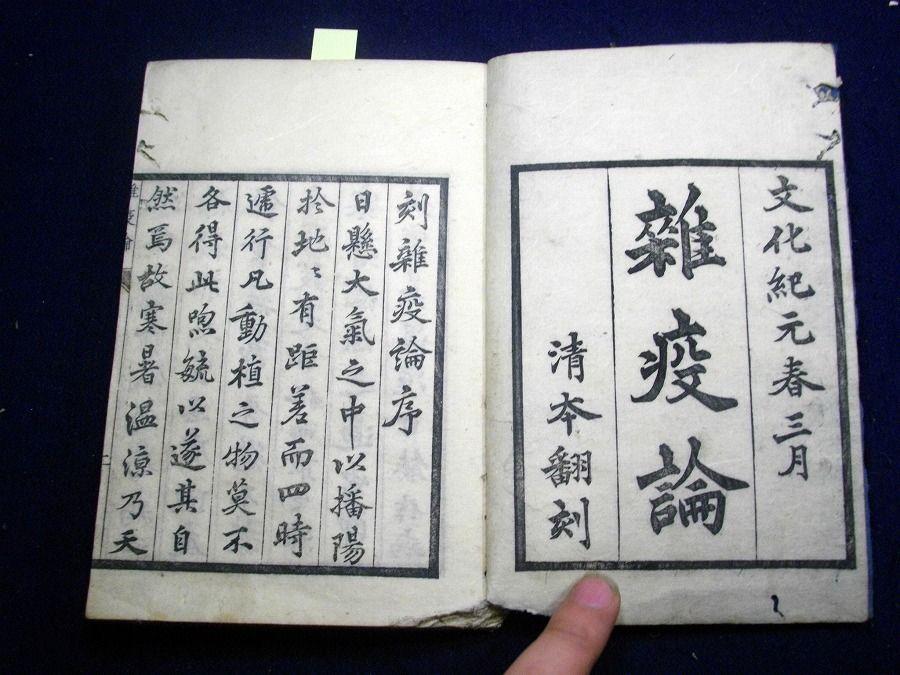 文化紀元春三月
雜疫論
清本翻刻
刻雜疫論序
日懸大氣之中以播陽
於地〻有距差而四時
遞行凡動植之物莫不
各得此煦毓以遂其自
然焉故寒暑温涼乃天